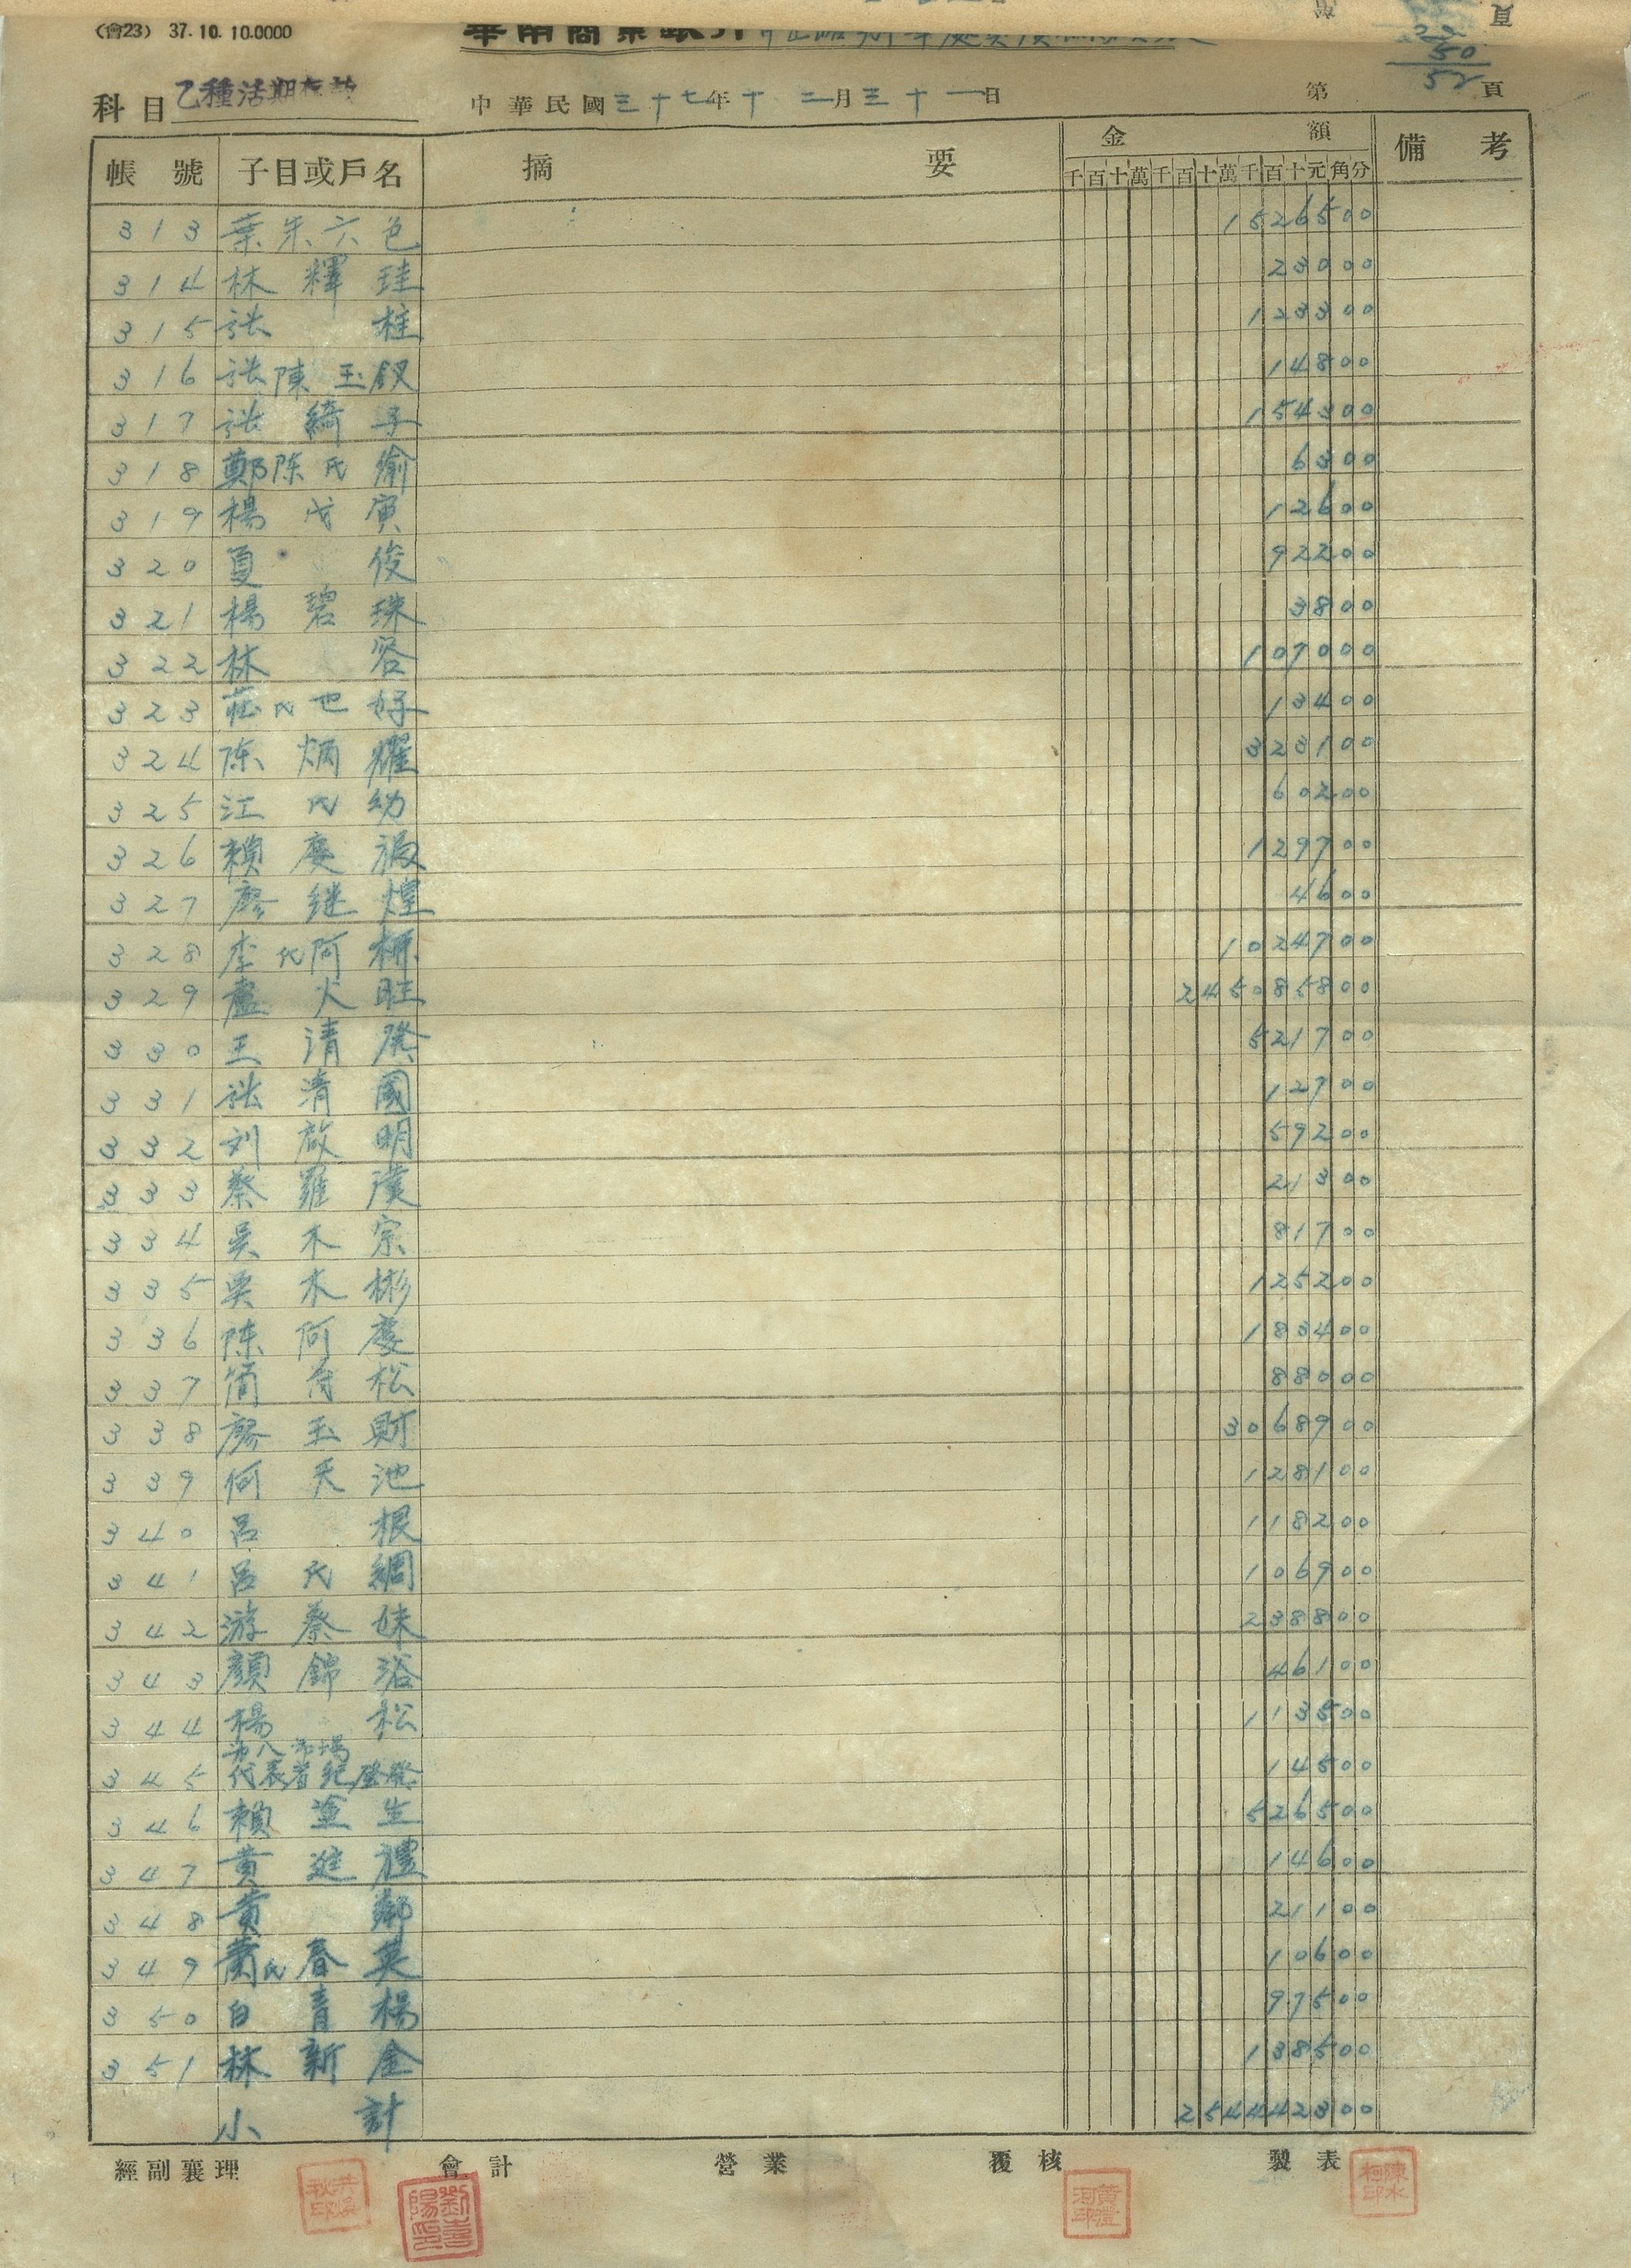 (會23) 37.10.10.0000
華南商業銀行
50
52
頁
科目 乙種活期存款 中華民國三十七年十二月三十一日 第 頁
帳號 子目或戶名 摘要 金額 備考
千百十萬千百十萬千百十元角分
313 葉朱六色 1526500
314 林釋珪 23000
315 张桂 123300
316 张陳玉釵 14800
317 张綺子 154300
318 鄭陈氏偷 6300
319 楊戊寅 12600
320 夏俊 92200
321 楊碧珠 3800
322 林容 107000
323 莊氏也好 13400
324 陈炳耀 323100
325 江氏幼 60200
326 賴慶福 129700
327 廖继煌 4600
328 李氏阿柳 1024700
329 盧火旺 245085800
330 王清癸 521700
331 张清國 12700
332 刘啟明 59200
333 蔡羅漢 21300
334 吳木宗 81700
335 吳木彬 125200
336 陈阿慶 183400
337 簡付松 88000
338 廖玉財 3068900
339 何天池 128100
340 呂根 118200
341 呂氏綢 106900
342 游蔡妹 238800
343 顏錦浴 46100
344 楊松 113500
第八市場
345 代表者紀登發 14500
346 賴並生 526500
347 黃進禮 14600
348 黃鄰 21100
349 蕭氏春英 10600
350 白青楊 97500
351 林新金 138500
小計 2544442300
經副襄理 會計 營業 覆核 製表
劉喜陽印
黃澄河印
陳水柯印